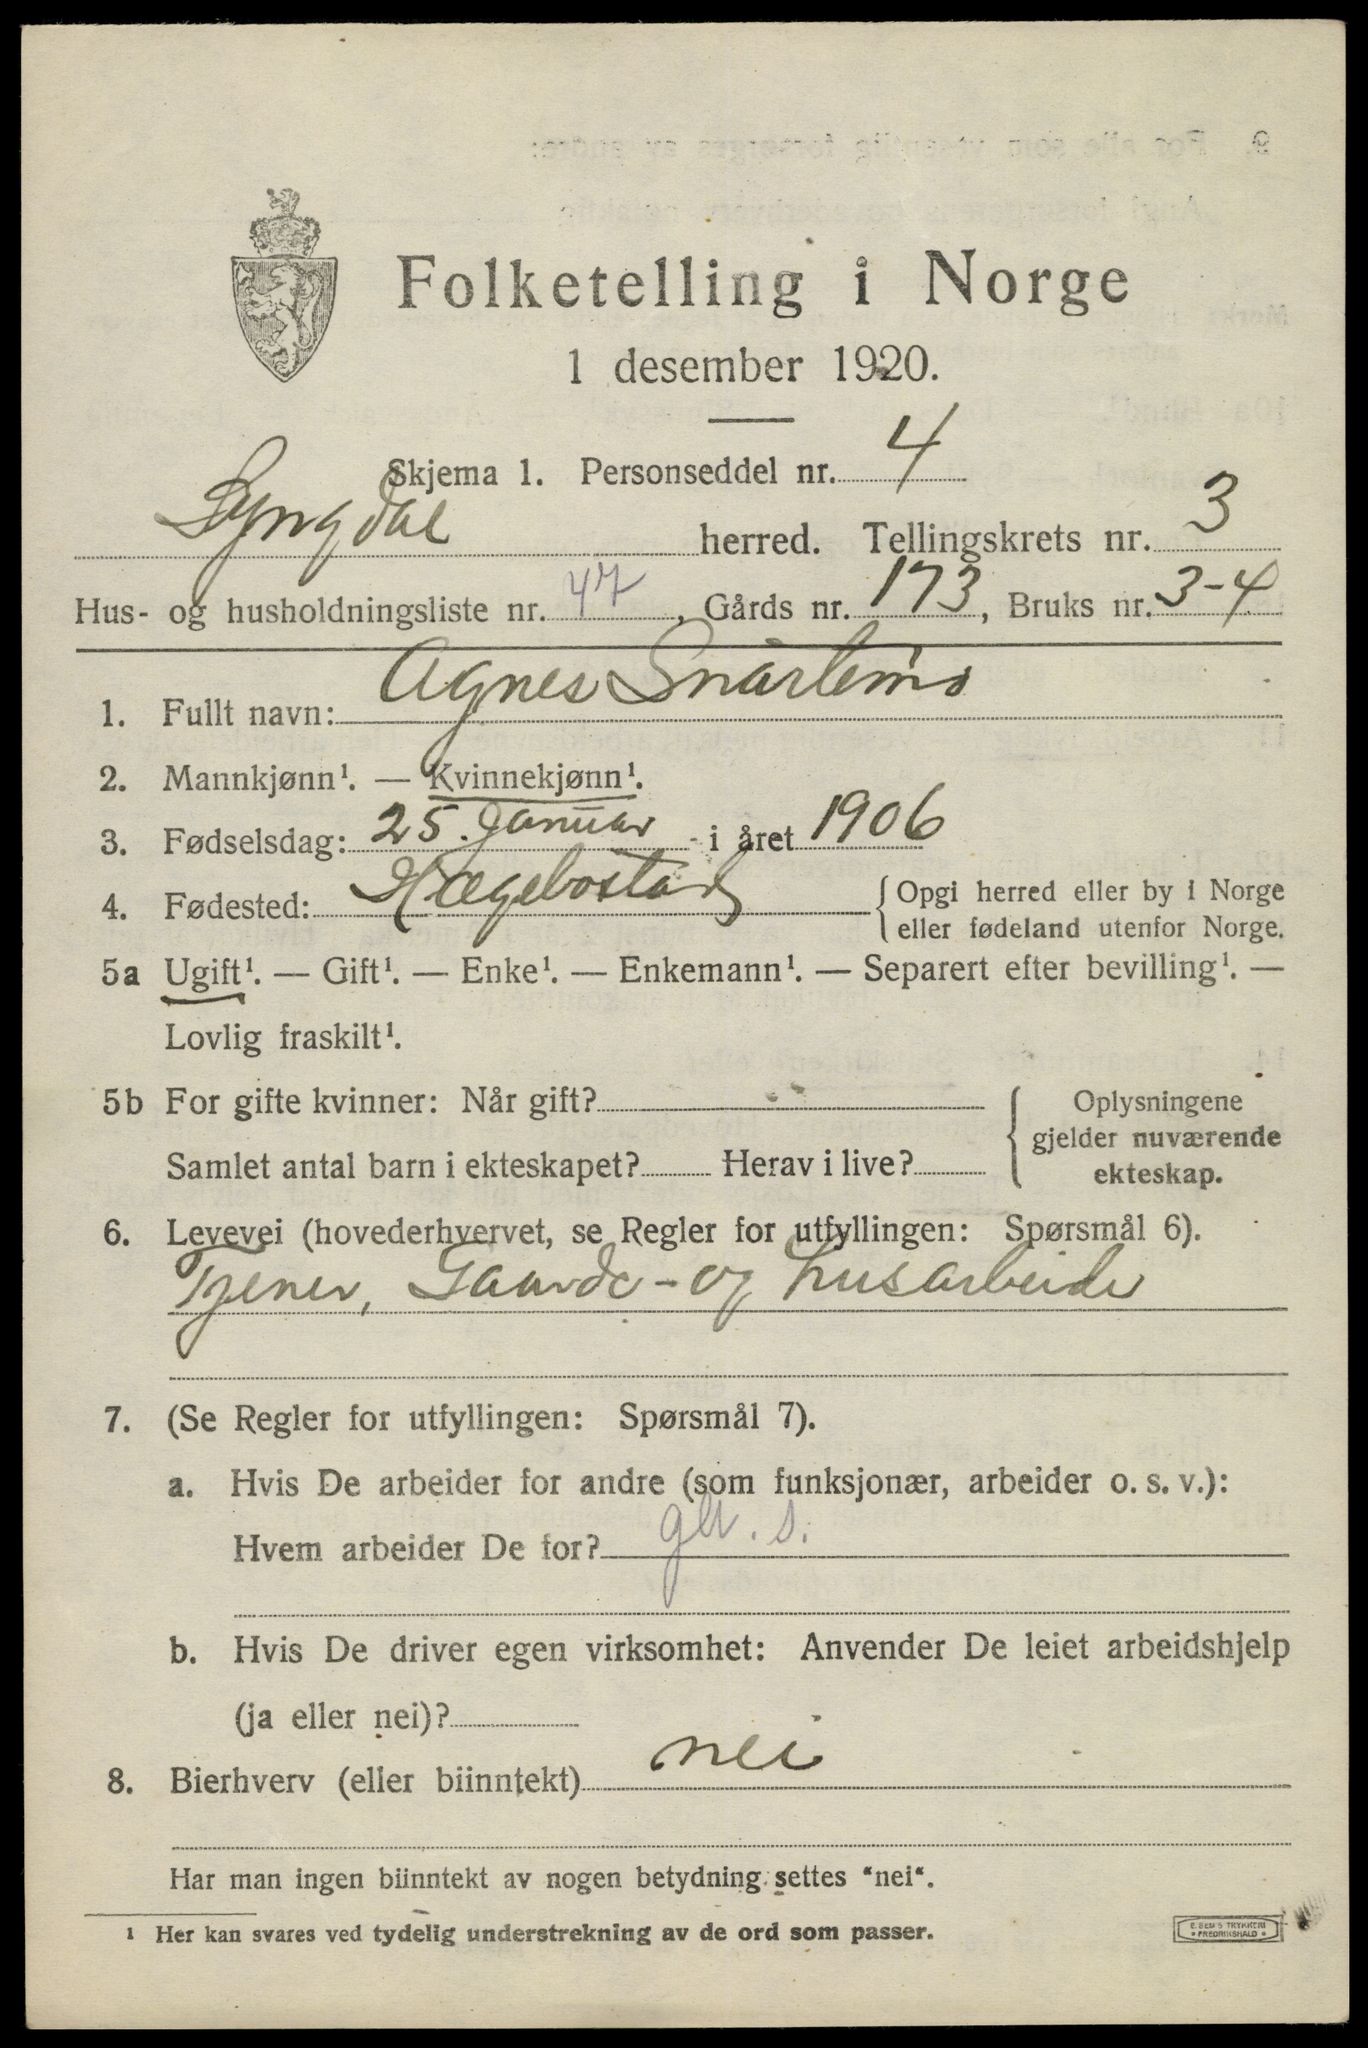 Folketelling i Norge
1 desember 1920.
Skjema 1. Personseddel nr. 4
Lyngdal herred. Tellingskrets nr. 3
Hus- og husholdningsliste nr. 47, Gårds nr. 173, Bruks nr. 3-4
1. Fullt navn: Agnes Snartemo
2. Mannkjønn¹. — Kvinnekjønn¹.
3. Fødselsdag: 25. Januar i året 1906
4. Fødested: Hægebostad { Opgi herred eller by i Norge
eller fødeland utenfor Norge.
5a Ugift¹. — Gift¹. — Enke¹. — Enkemann¹. — Separert efter bevilling¹. —
Lovlig fraskilt¹.
5b For gifte kvinner: Når gift? { Oplysningene
gjelder nuværende
Samlet antal barn i ekteskapet? Herav i live?
ekteskap.
6. Levevei (hovederhvervet, se Regler for utfyllingen: Spørsmål 6).
Tjener, Gaards- og husarbeide
7. (Se Regler for utfyllingen: Spørsmål 7).
a. Hvis De arbeider for andre (som funksjonær, arbeider o. s. v.):
Hvem arbeider De for? s.
b. Hvis De driver egen virksomhet: Anvender De leiet arbeidshjelp
(ja eller nei)?
8. Bierhverv (eller biinntekt) nei
Har man ingen biinntekt av nogen betydning settes "nei".
¹ Her kan svares ved tydelig understrekning av de ord som passer.
E. SEM'S TRYKKERI
* FREDRIKSHALD *